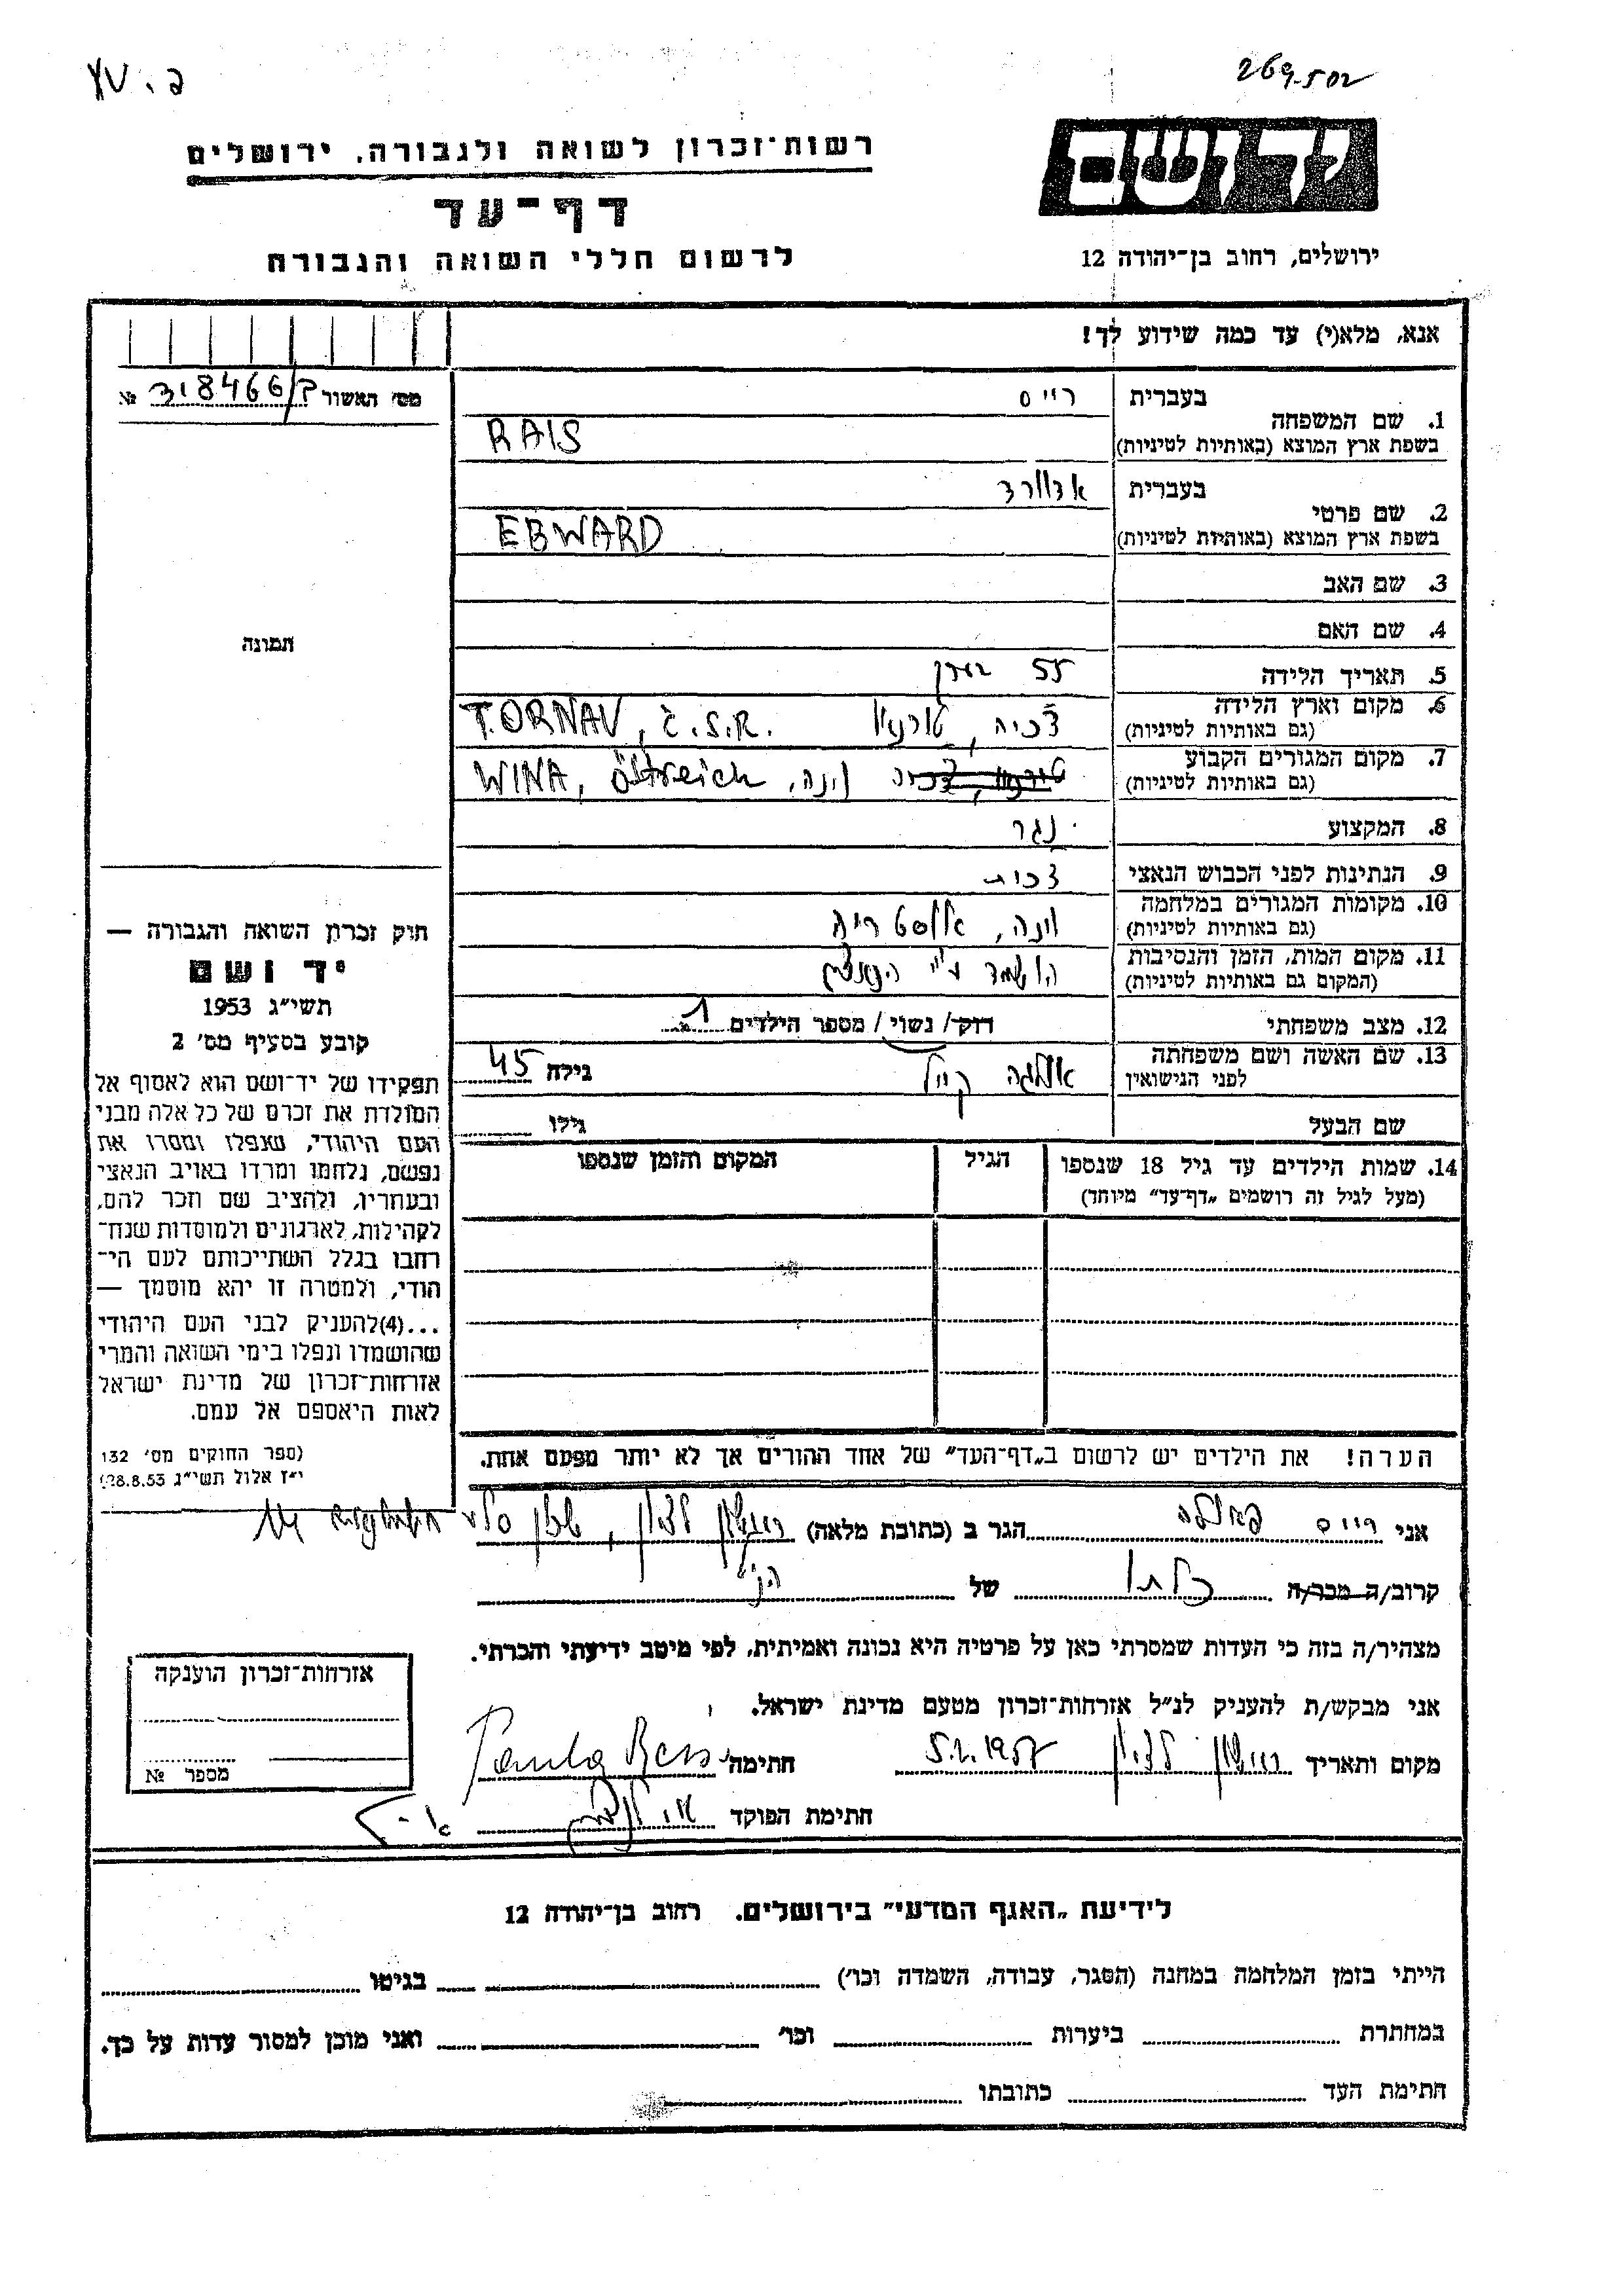 269502
רשות־זכרון לשואה ולגבורה, ירושלים
דף־עד
לרשום חללי השואה והגבורה
יד ושם
ירושלים, רחוב בן־יהודה 12
אנא, מלא(י) עד כמה שידוע לך!
מס׳ האשור 318466/ № 
1. שם המשפחה
בעברית רייס
בשפת ארץ המוצא (באותיות לטיניות) RAIS
2. שם פרטי
בעברית אדוורד
בשפת ארץ המוצא (באותיות לטיניות) EBWARD
3. שם האב
4. שם האם
תמונה
5. תאריך הלידה 55 בערך
6. מקום וארץ הלידה צ׳כיה, טורנאו TORNAV, č.S.R.
(גם באותיות לטיניות)
7. מקום המגורים הקבוע וינה, WINA, östreich
(גם באותיות לטיניות)
8. המקצוע נגר
9. הנתינות לפני הכבוש הנאצי צ׳כית
10. מקומות המגורים במלחמה וינה, אוסטריה
(גם באותיות לטיניות)
11. מקום המות, הזמן והנסיבות הושמד ע״י הנאצים
(המקום גם באותיות לטיניות)
12. מצב משפחתי רוק/ נשוי/ מספר הילדים 1
13. שם האשה ושם משפחתה אולגה גילה 45
לפני הנישואין
שם הבעל גילו
14. שמות הילדים עד גיל 18 שנספו הגיל המקום והזמן שנספו
(מעל לגיל זה רושמים „דף־עד״ מיוחד)
חוק זכרון השואה והגבורה —
יד ושם
תשי״ג 1953
קובע בסעיף מס׳ 2
תפקידו של יד־ושם הוא לאסוף אל
המולדת את זכרם של כל אלה מבני
העם היהודי, שנפלו ומסרו את
נפשם, נלחמו ומרדו באויב הנאצי
ובעוזריו, ולהציב שם וזכר להם,
לקהילות, לארגונים ולמוסדות שנח־
רבו בגלל השתייכותם לעם הי־
הודי, ולמטרה זו יהא מוסמך —
...(4) להעניק לבני העם היהודי
שהושמדו ונפלו בימי השואה והמרי
אזרחות־זכרון של מדינת ישראל
לאות היאספם אל עמם.
(ספר החוקים מס׳ 132
י״ז אלול תשי״ג 28.8.53)
הערה! את הילדים יש לרשום ב„דף־העד״ של אחד ההורים אך לא יותר מפעם אחת.
אני רייס פאולה הגר ב (כתובת מלאה) ראשון לציון,
קרוב/ה מכר/ה כלתו של הנ״ל
מצהיר/ה בזה כי העדות שמסרתי כאן על פרטיה היא נכונה ואמיתית, לפי מיטב ידיעתי והכרתי.
אני מבקש/ת להעניק לנ״ל אזרחות־זכרון מטעם מדינת ישראל.
מקום ותאריך ראשון לציון 5.2.1957 חתימה Paula
חתימת הפוקד
אזרחות־זכרון הוענקה
מספר №
לידיעת „האגף המדעי״ בירושלים. רחוב בן־יהודה 12
הייתי בזמן המלחמה במחנה (הסגר, עבודה, השמדה וכו׳) בגיטו
במחתרת ביערות וכו׳ ואני מוכן למסור עדות על כך.
חתימת העד כתובתו